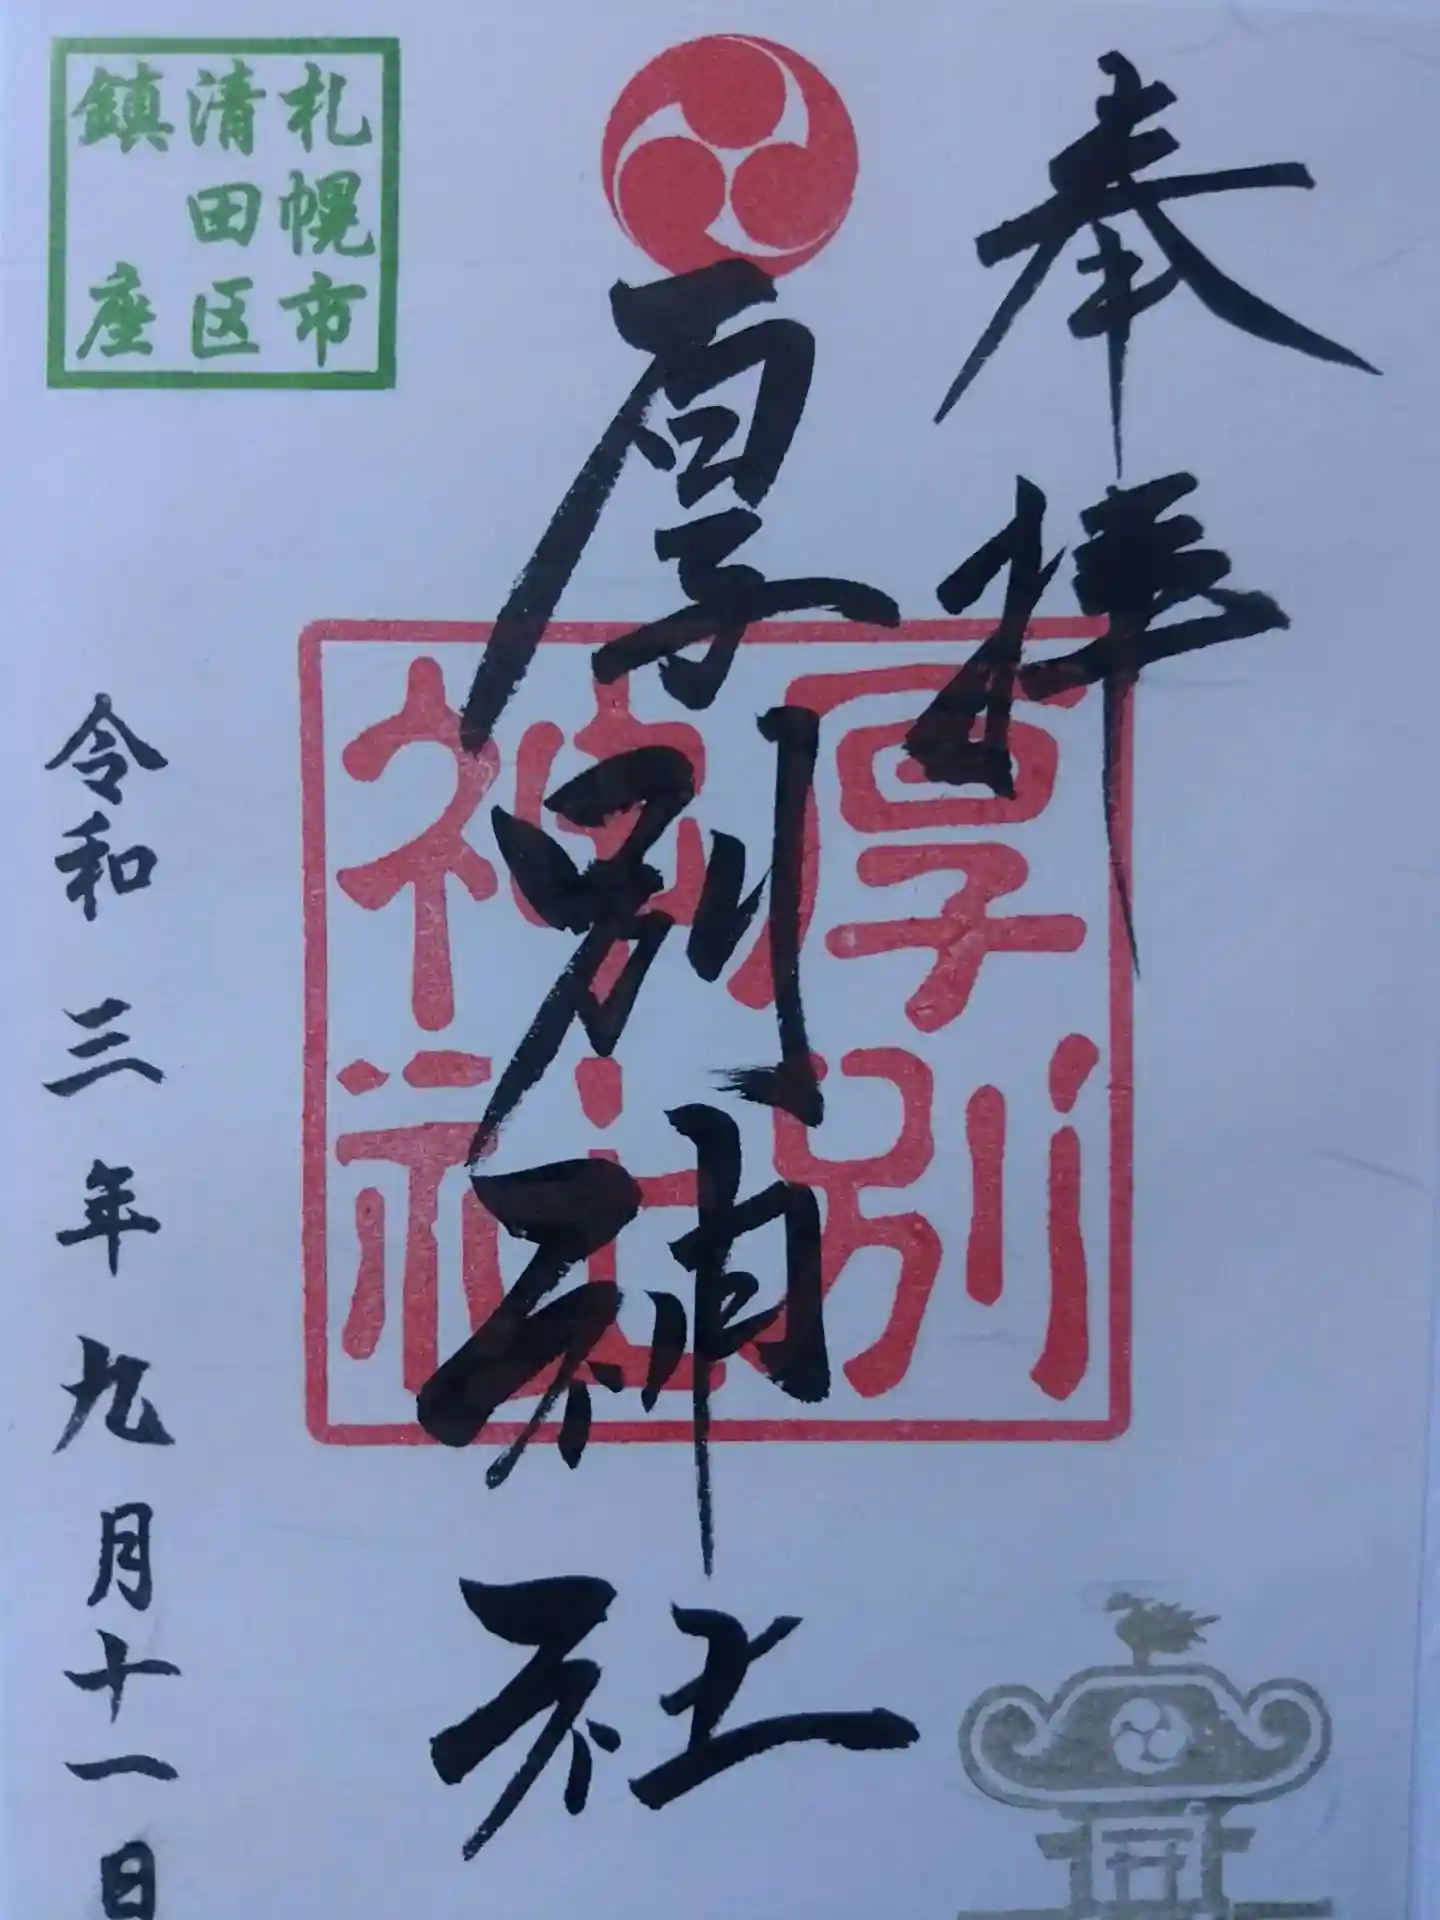 奉拝
厚別神社
厚別
神社
札幌市
清田区
鎮座
令和三年九月十一日